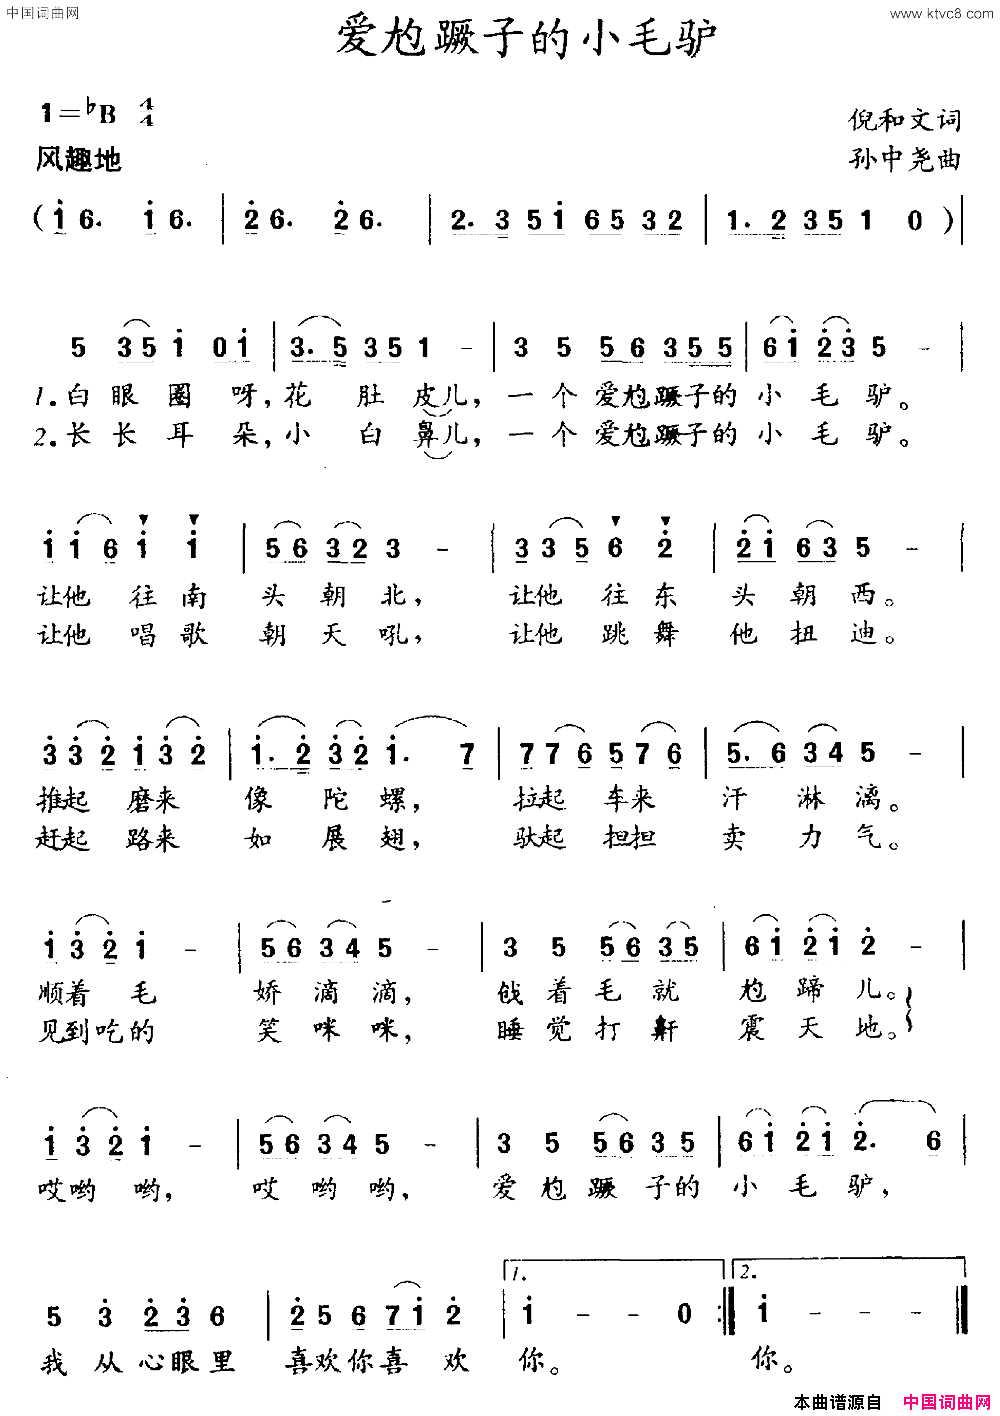 中国词曲网
www.ktvc8.com
爱尥蹶子的小毛驴
1=♭B 4/4
倪和文词
风趣地
孙中尧曲
(i6. i6. | 26. 26. | 2. 35i6532 | 1. 2351 0 )|
5 35i 0i | 3. 5351 - | 3 5 56355 | 6i235 - |
1.白眼圈呀,花肚皮儿,一个爱尥蹶子的小毛驴。
2.长长耳朵,小白鼻儿,一个爱尥蹶子的小毛驴。
ii6ii | 56323 - | 33562 | 2i635 - |
让他往南头朝北,让他往东头朝西。
让他唱歌朝天吼,让他跳舞他扭迪。
332i32 | i. 232i. 7 | 776576 | 5. 6345 - |
推起磨来像陀螺,拉起车来汗淋漓。
赶起路来如展翅,驮起担担卖力气。
i32i - | 56345 - | 3 5 5635 | 6i2i2 - |
顺着毛娇滴滴,戗着毛就尥蹄儿。
见到吃的笑咪咪,睡觉打鼾震天地。
i32i - | 56345 - | 3 5 5635 | 6i2i2. 6 |
哎哟哟,哎哟哟,爱尥蹶子的小毛驴,
1. 2.
5 3 236 | 2567i2 | i - - 0 :| i - - -
我从心眼里喜欢你喜欢你。你。
本曲谱源自 中国词曲网